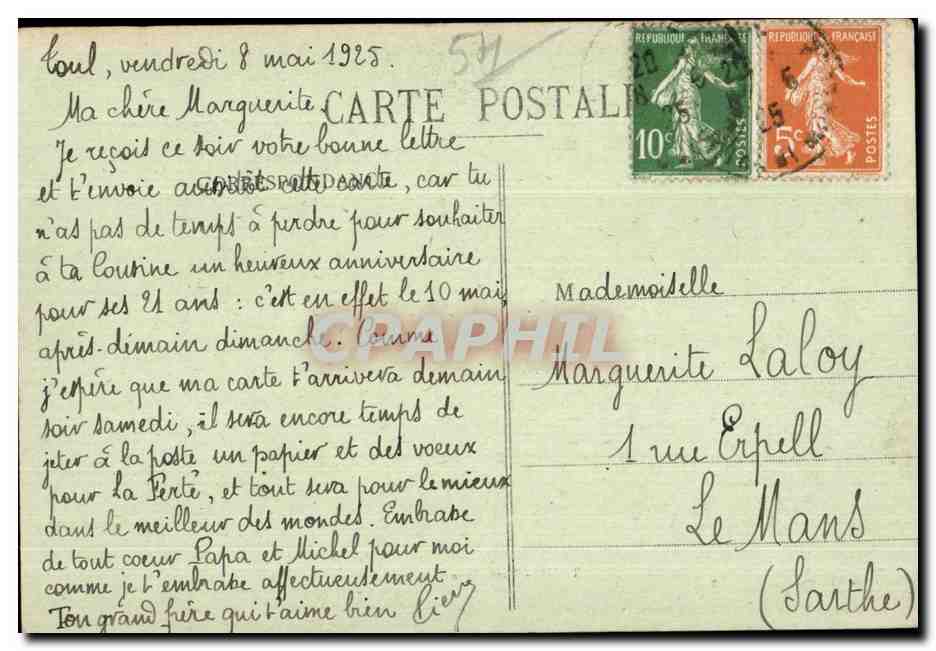 Toul, vendredi 8 mai 1925.
54
Ma chère Marguerite,
CARTE POSTALE
Je reçois ce soir votre bonne lettre
et t'envoie aussitôt cette carte, car tu
CORRESPONDANCE
n'as pas de temps à perdre pour souhaiter
à ta Cousine un heureux anniversaire
pour ses 21 ans : c'est en effet le 10 mai,
après-demain dimanche. Comme
j'espère que ma carte t'arrivera demain
soir samedi, il sera encore temps de
jeter à la poste un papier et des voeux
pour La Ferté, et tout sera pour le mieux
dans le meilleur des mondes. Embrasse
de tout coeur Papa et Michel pour moi
comme je t'embrasse affectueusement
Ton grand frère qui t'aime bien
REPUBLIQUE FRANÇAISE
10c
POSTES
REPUBLIQUE FRANÇAISE
5c
POSTES
Mademoiselle
Marguerite Laloy
1 rue Erpell
Le Mans
(Sarthe)
CPAPHIL